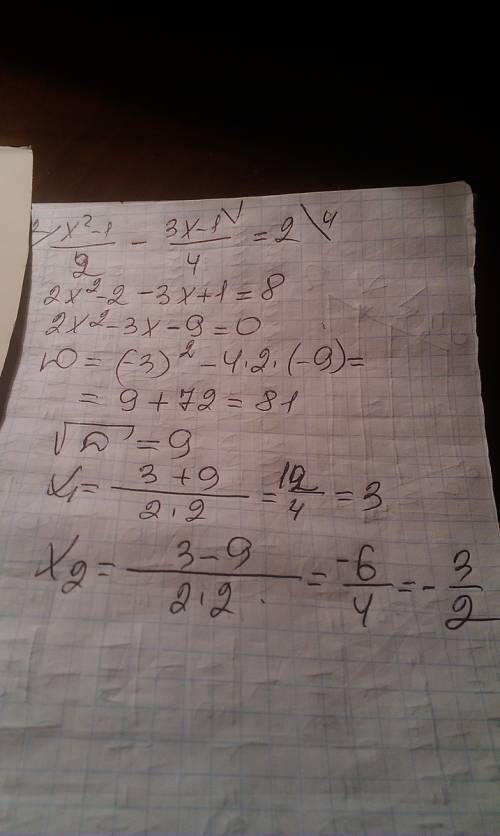 2/ (x²-1)/2 - (3x-1)/4 \1 = 2 \4
2x²-2-3x+1=8
2x²-3x-9=0
D = (-3)² - 4·2·(-9)=
= 9+72=81
√D = 9
x₁= (3+9)/(2·2) = 12/4 = 3
x₂= (3-9)/(2·2) = -6/4 = - 3/2